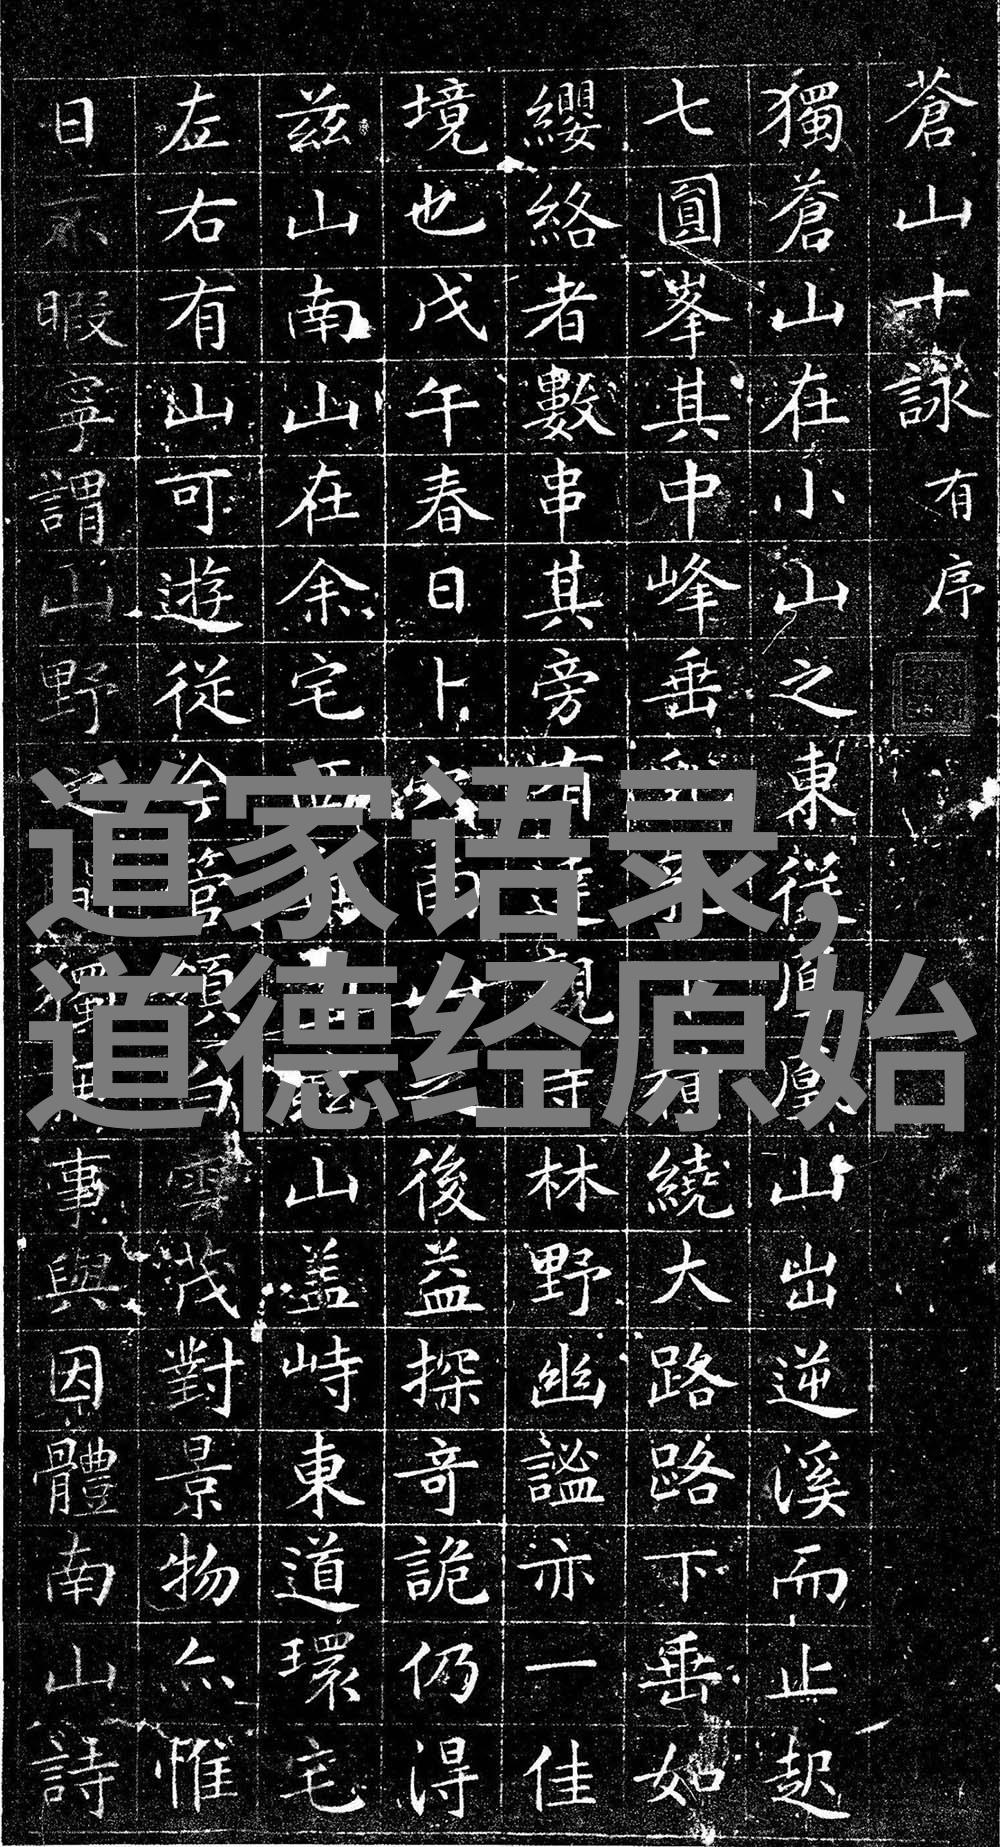 蒼山十詠有序
獨蒼山在小山之東從凰山出逆溪而止起
七圓峯其中峰垂繞大路路下垂如
纓絡者數串其旁有達親寺林野幽謐亦一佳
境也戊午春日卜山之後益探奇詭仍得
兹山南山在余宅山蓋峙東道環宅
左右有山可遊從今管領白雲茂對景物亦惟
日不暇寧謂山野事與因體南山詩
道家语录,
道德经原始